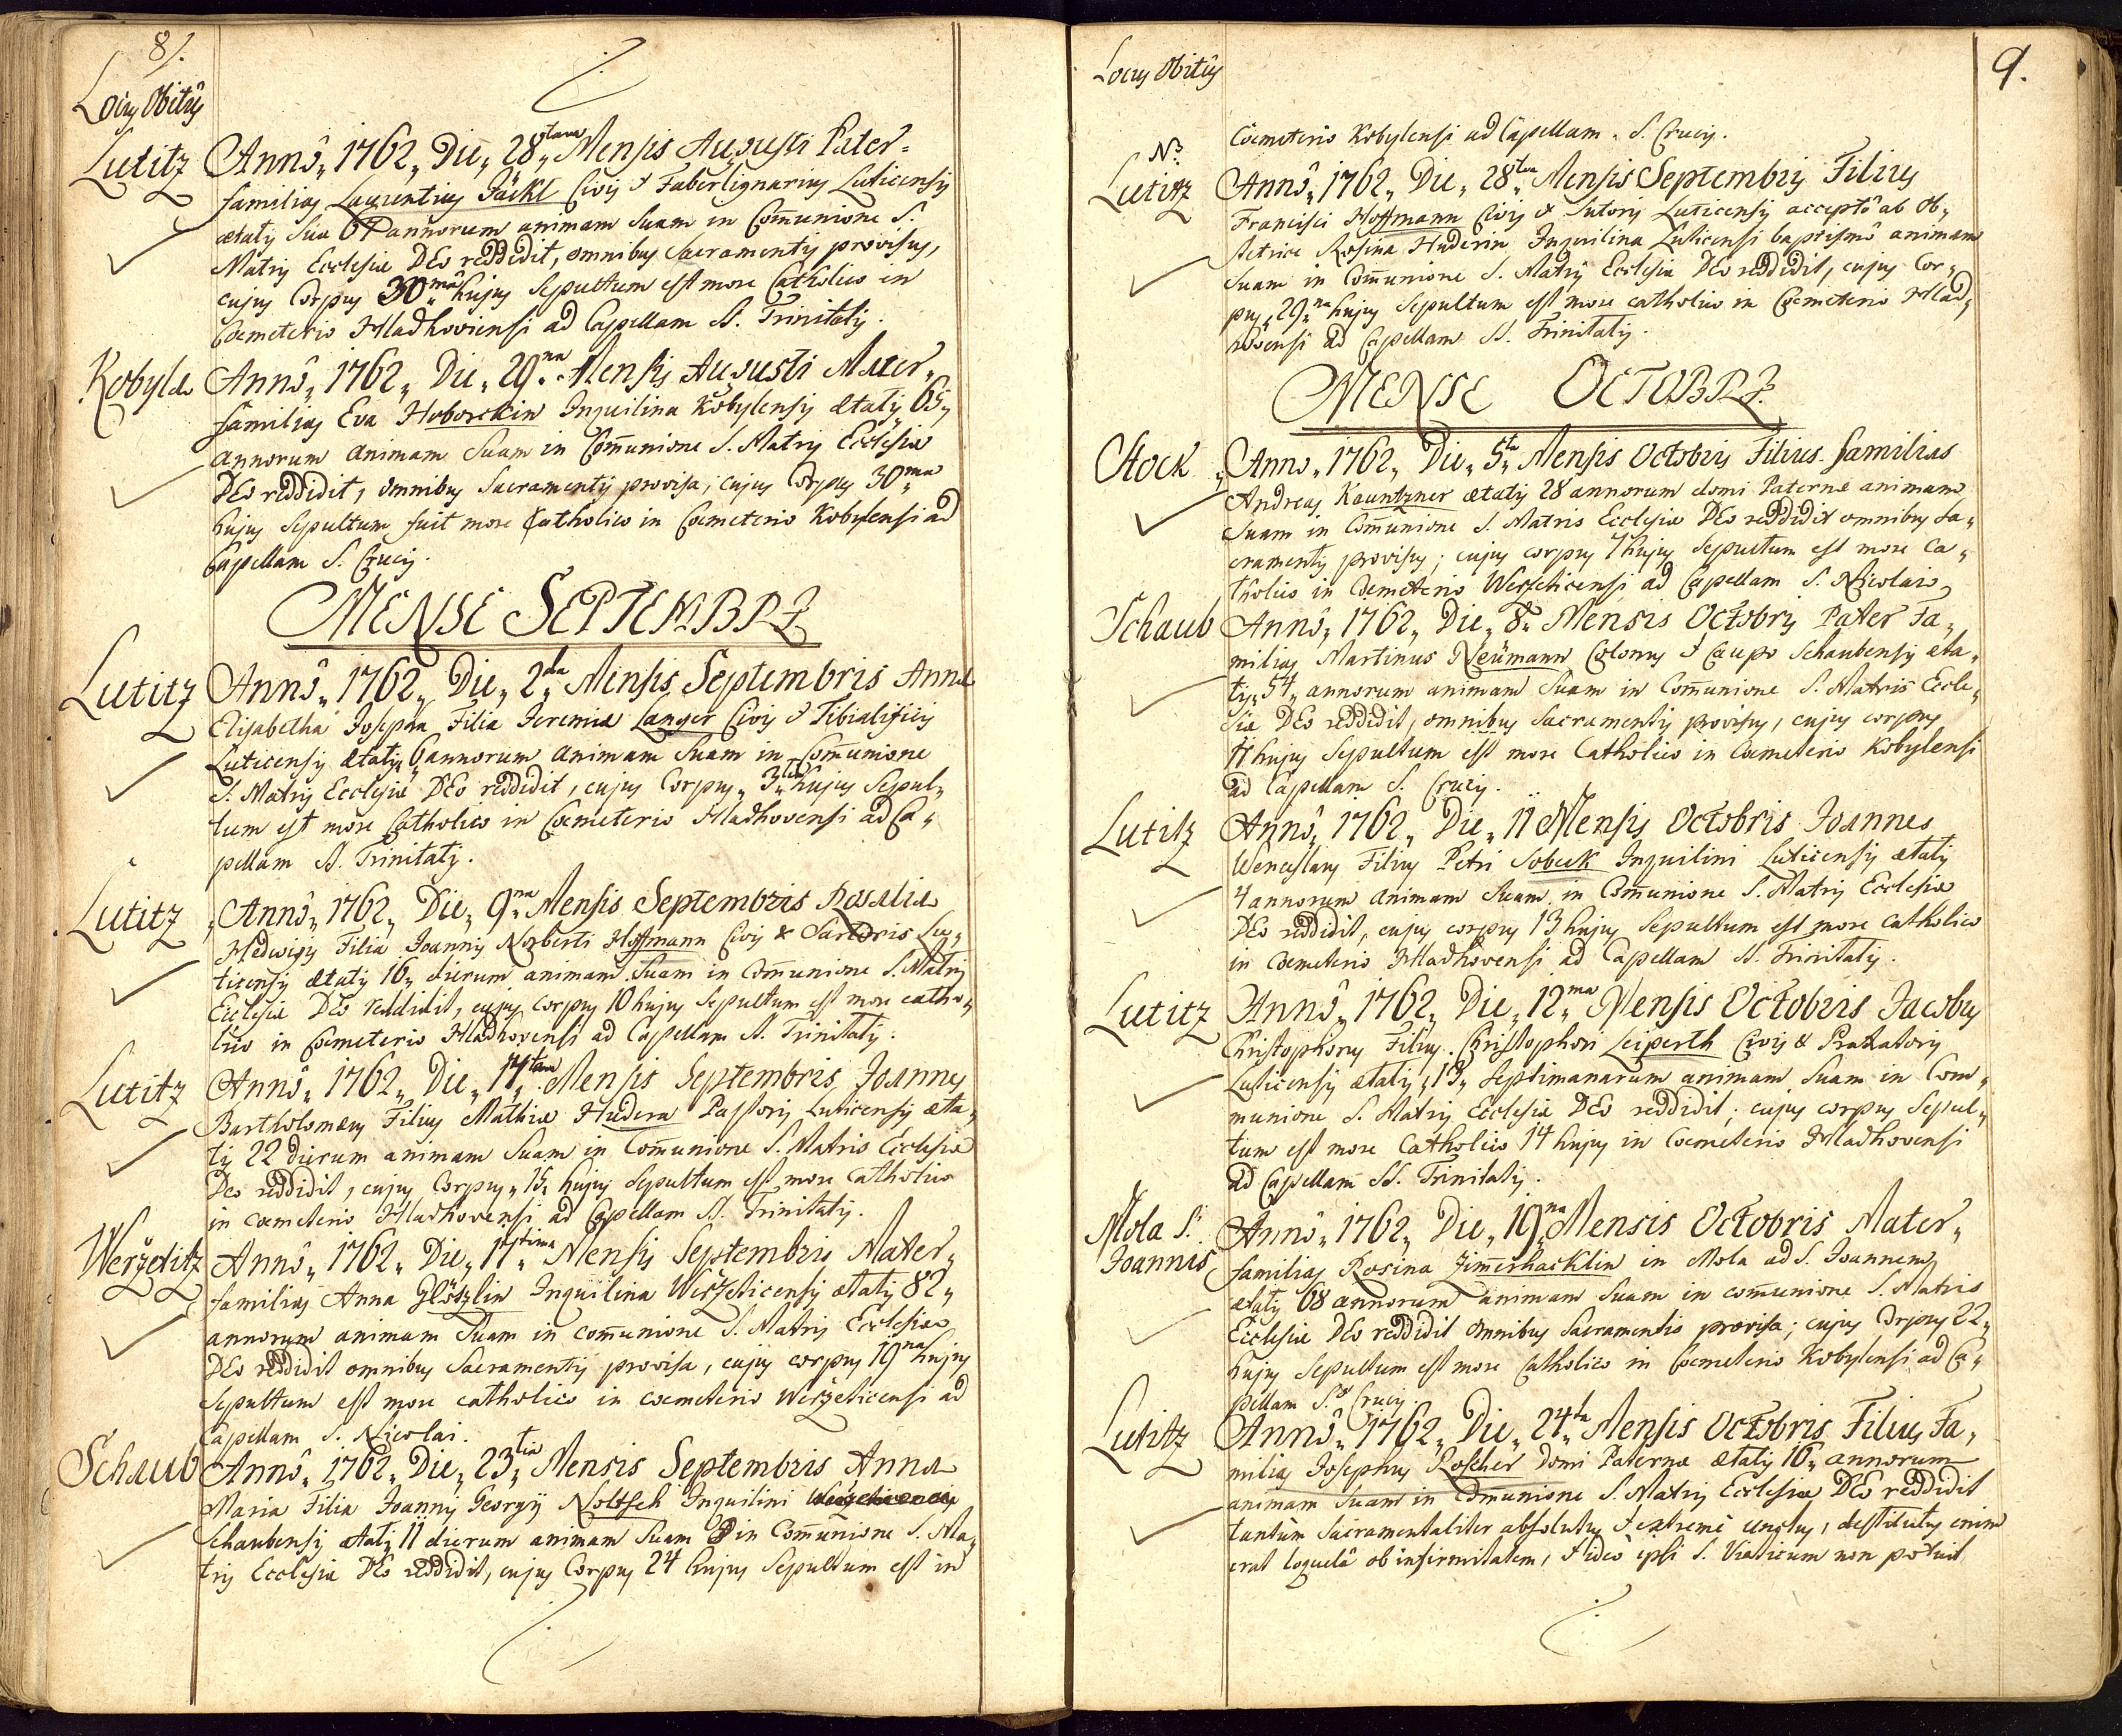 8/.
Locus Obitûs
Lutitz Annô„ 1762„ Die„ 28„tava Mensis Augusti Pater=
familias Laurentius Jäckl Civis & Faberlignarius Luticensis
ætatis suæ 67 annorum animam suam in Com̄unione S.
Matris Ecclesiæ DEo reddidit, omnibus Sacramentis provisus,
cujus Corpus 30„mâ hujus Sepultum est more Catholico in
Coemeterio Hladkoviensi ad Capellam SS. Trinitatis.
Kobyla Annô„ 1762„ Die„ 29„na Mensis Augusti Mater„
familias Eva Hoborckin Inquilina Kobylensis ætatis 65„
annorum animam Suam in Com̄unione S. Matris Ecclesiæ
DEo reddidit, omnibus Sacramentis provisa, cujus Corpus 30„ma
hujus Sepultum fuit more Catholico in Coemeterio Kobylensi ad
Capellam S. Crucis.
MENSE SEPTEMBRI
Lutitz Annô„ 1762„ Die„ 2„da Mensis Septembris Anna
Elisabetha Josepha Filia Jeremiæ Langer Civis & Tibialificis
Luticensis ætatis 6 annorum animam Suam in Com̄unione
S. Matris Ecclesiæ DEo reddidit, cujus Corpus„ 3„tia hujus Sepul„
tum est more Catholico in Coemeterio Hladkovensi ad Ca„
pellam SS. Trinitatis.
Lutitz Annô„ 1762„ Die„ 9„na Mensis Septembris Rosalia
Hedwigis Filia Joannis Norberti Hoffmann Civis & Sartoris Lu„
ticensis ætatis 16„ dierum animam Suam in Com̄unione S. Matris
Ecclesiæ DEo reddidit, cujus corpus 10 hujus Sepultum est more catho„
lico in Coemeterio Hladkovensi ad Capellam SS. Trinitatis.
Lutitz Annô„ 1762„ Die„ 14„tam Mensis Septembris Joannes
Bartholomæus Filius Mathiæ Hudera Pastoris Luticensis æta„
tis 22 dierum animam Suam in Com̄unione S. Matris Ecclesiæ
Deo reddidit, cujus Corpus„ 15„ hujus Sepultum est more Catholico
in coemeterio Hladkovensi ad Capellam SS. Trinitatis.
Weržetitz Annô„ 1762„ Die„ 17„tima Mensis Septembris Mater„
familias Anna Glöszlin Inquilina Weržeticensis ætatis 82„
annorum animam Suam in com̄unione S. Matris Ecclesiæ
DEo reddidit omnibus Sacramentis provisa, cujus corpus 19na hujus
Sepultum est more catholico in coemeterio Weržeticensi ad
Capellam S. Nicolai.
Schaub Annô„ 1762„ Die„ 23„tia Mensis Septembris Anna
Maria Filia Joannis Georgij Noltsch Inquilini
Schaubensis ætatis 11 dierum animam Suam in Com̄unione S. Ma„
tris Ecclesiæ DEo reddidit, cujus Corpus 24 hujus Sepultum est in
9.
Locus Obitûs
Coemeterio Kobylensi ad Capellam S. Crucis.
N3
Lutitz Annô„ 1762„ Die„ 28„va Mensis Septembris Filius
Francisci Hoffmann Civis & Sutoris Luticensis acceptô ab Ob„
stetrice Rosina Huderin Inquilina Luticensi baptismô animam
Suam in Com̄unione S. Matris Ecclesiæ DEo reddidit, cujus Cor„
pus„ 29„na hujus Sepultum est more catholico in Coemeterio Hlad„
kovensi ad Capellam SS. Trinitatis.
MENSE OCTOBRI
Stock Anno„ 1762„ Die„ 5„ta Mensis Octobris Filius familias
Andreas Kauntzner ætatis 28 annorum domi Paternæ animam
Suam in Com̄unione S. Matris Ecclesiæ DEo reddidit omnibus Sa„
cramentis provisus; cujus corpus 7 hujus Sepultum est more Ca„
tholico in Coemeterio Werseticensi ad Capellam S. Nicolai
Schaub Annô„ 1762„ Die„ 8„ Mensis Octobris Pater Fa„
milias Martinus Neümann Colonus & Caupo Schaubensis æta„
tis„ 54„ annorum animam Suam in Com̄unione S. Matris Eccle„
siæ DEo reddidit, omnibus Sacramentis provisus, cujus corpus
11 hujus Sepultum est more Catholico in Coemeterio Kobylensi
ad Capellam S. Crucis.
Lutitz Annô„ 1762„ Die„ 11 Mensis Octobris Joannes
Wenceslaus Filius Petri Sobeck Inquilini Luticensis ætatis
4 annorum animam Suam in Com̄unione S. Matris Ecclesiæ
DEo reddidit, cujus corpus 13 hujus Sepultum est more catholico
in Coemeterio Hladkovensi ad Capellam SS. Trinitatis.
Lutitz Annô„ 1762„ Die„ 12„ma Mensis Octobris Jacobus
Christophorus Filius Christophori Leiperth Civis &
Luticensis ætatis„ 13„ Septimanarum animam Suam in Com„
munione S. Matris Ecclesiæ DEo reddidit; cujus corpus Sepul„
tum est more Catholico 14 hujus in Coemeterio Hladkovensi
ad Capellam SS. Trinitatis.
Mola S. Annô„ 1762„ Die„ 19„na Mensis Octobris Mater„
Joannis familias Rosina Zim̄erhacklin in Mola ad S. Joannem
ætatis 68 annorum animam Suam in com̄unione S. Matris
Ecclesiæ DEo reddidit omnibus Sacramentis provisa; cujus Corpus 22„
hujus Sepultum est more Catholico in Coemeterio Kobylensi ad Ca„
pellam S. Crucis.
Lutitz Annô„ 1762„ Die„ 24„ta Mensis Octobris Filius Fa„
milias Josephus Roscher Domi Paternæ ætatis 16„ annorum
animam Suam in Com̄unione S. Matris Ecclesiæ DEo reddidit
tantùm Sacramentaliter absolutus & extremè unctus, destitutus enim
erat loquelâ ob infirmitatem, & ideò ipsi S. Viaticum non potuit